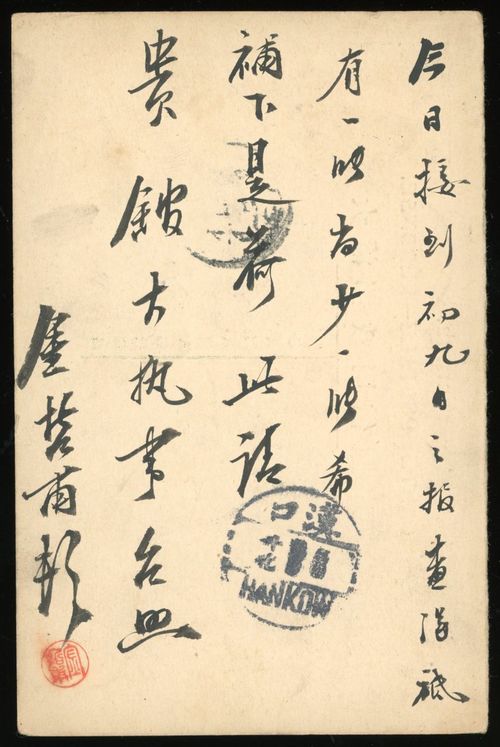 今日接到初九日之報畫祇
有一張尚少一張希
補下是荷 此請
貴館大執事台照
金哲甫
漢口
HANKOW